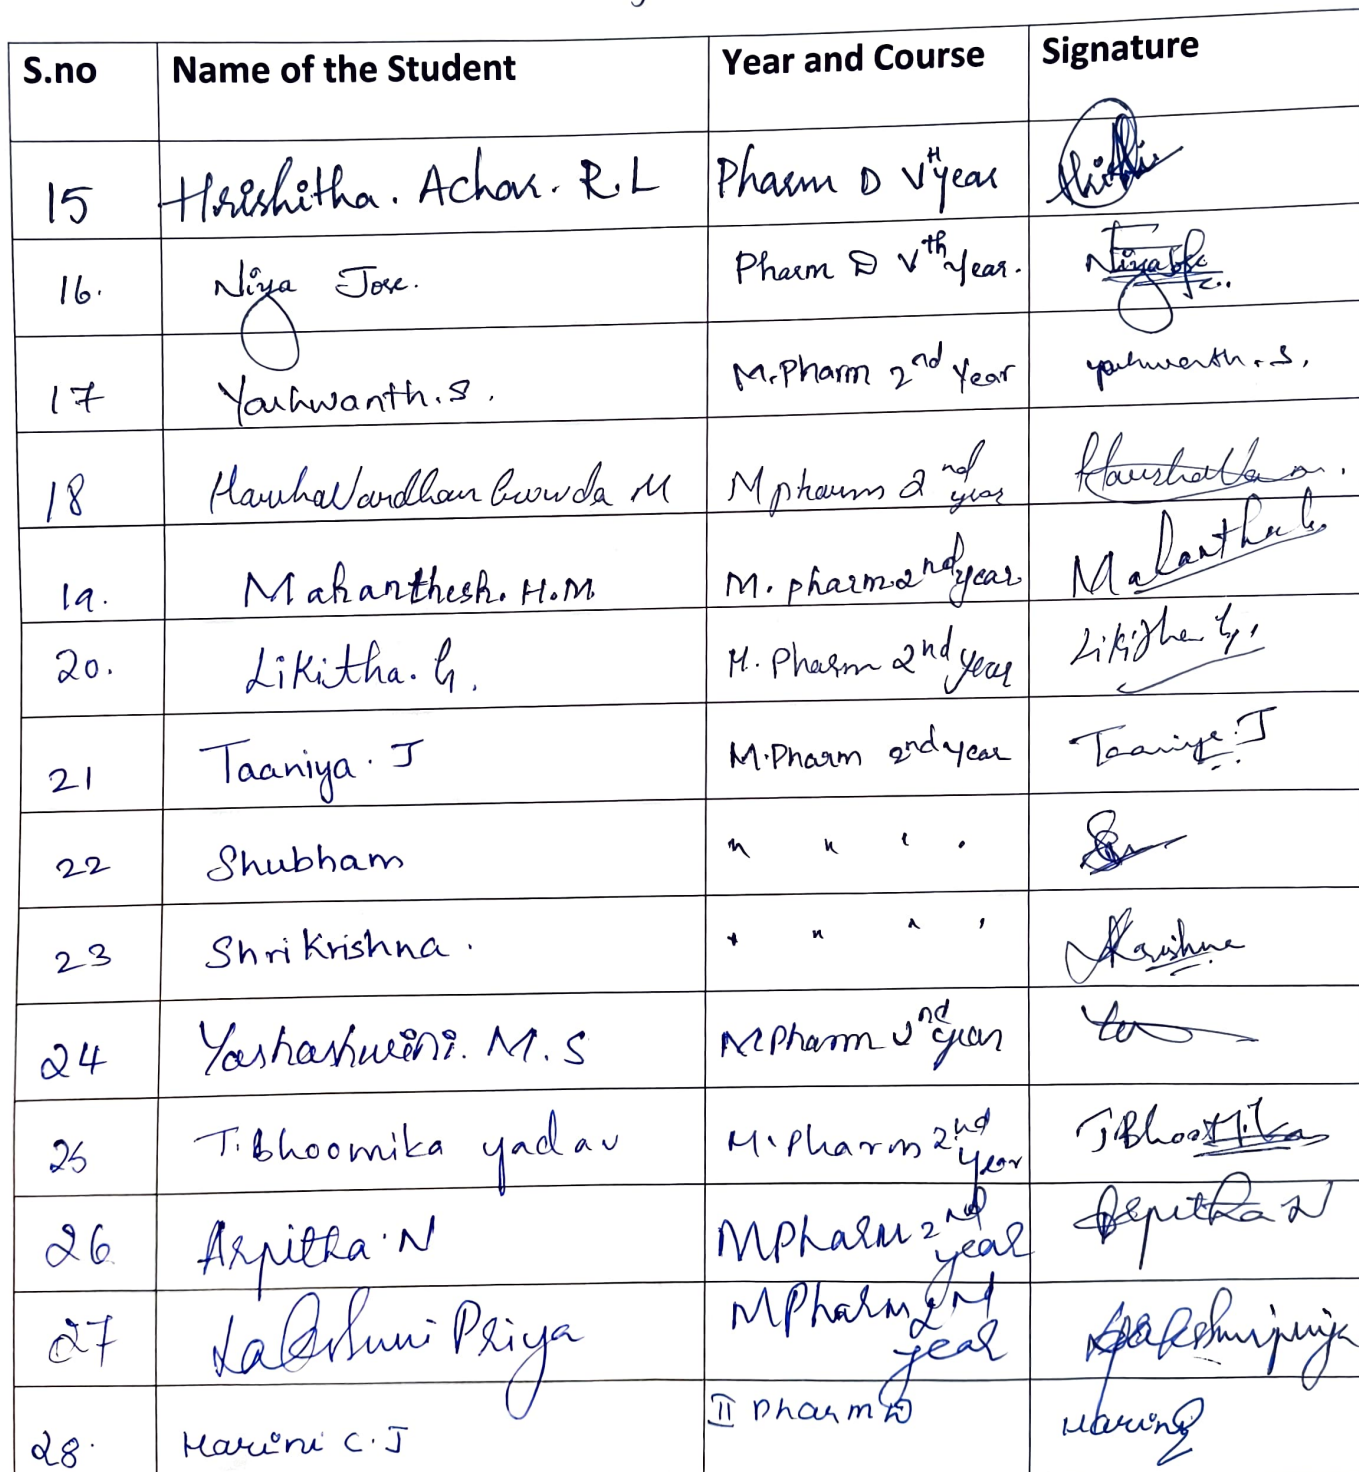 S.no Name of the Student Year and Course Signature
15 Hrishitha. Achar. R.L Pharm D Vth year
16. Niya Jose. Pharm D Vth Year. Niya Jose
17 Yashwanth.S. M.Pharm 2nd Year yashwanth.S.
18 HarshaVardhan Gowda M M pharm 2nd year
19. Mahanthesh. H.M M. pharm 2nd year Mahanthesh
20. Likitha. G. M. Pharm 2nd year Likitha G.
21 Taaniya. J M.Pharm 2nd year Taaniya. J
22 Shubham " " " "
23 Shri Krishna. " " " " Krishna
24 Yashashwini. M.S M Pharm 2nd year
25 T. Bhoomika yadav M. Pharm 2nd year T. Bhoomika
26 Arpitha. N M Pharm 2nd year Arpitha N
27 Lakshmi Priya M Pharm 2nd year Lakshmipriya
28. Harini C. J II Pharm D Harini